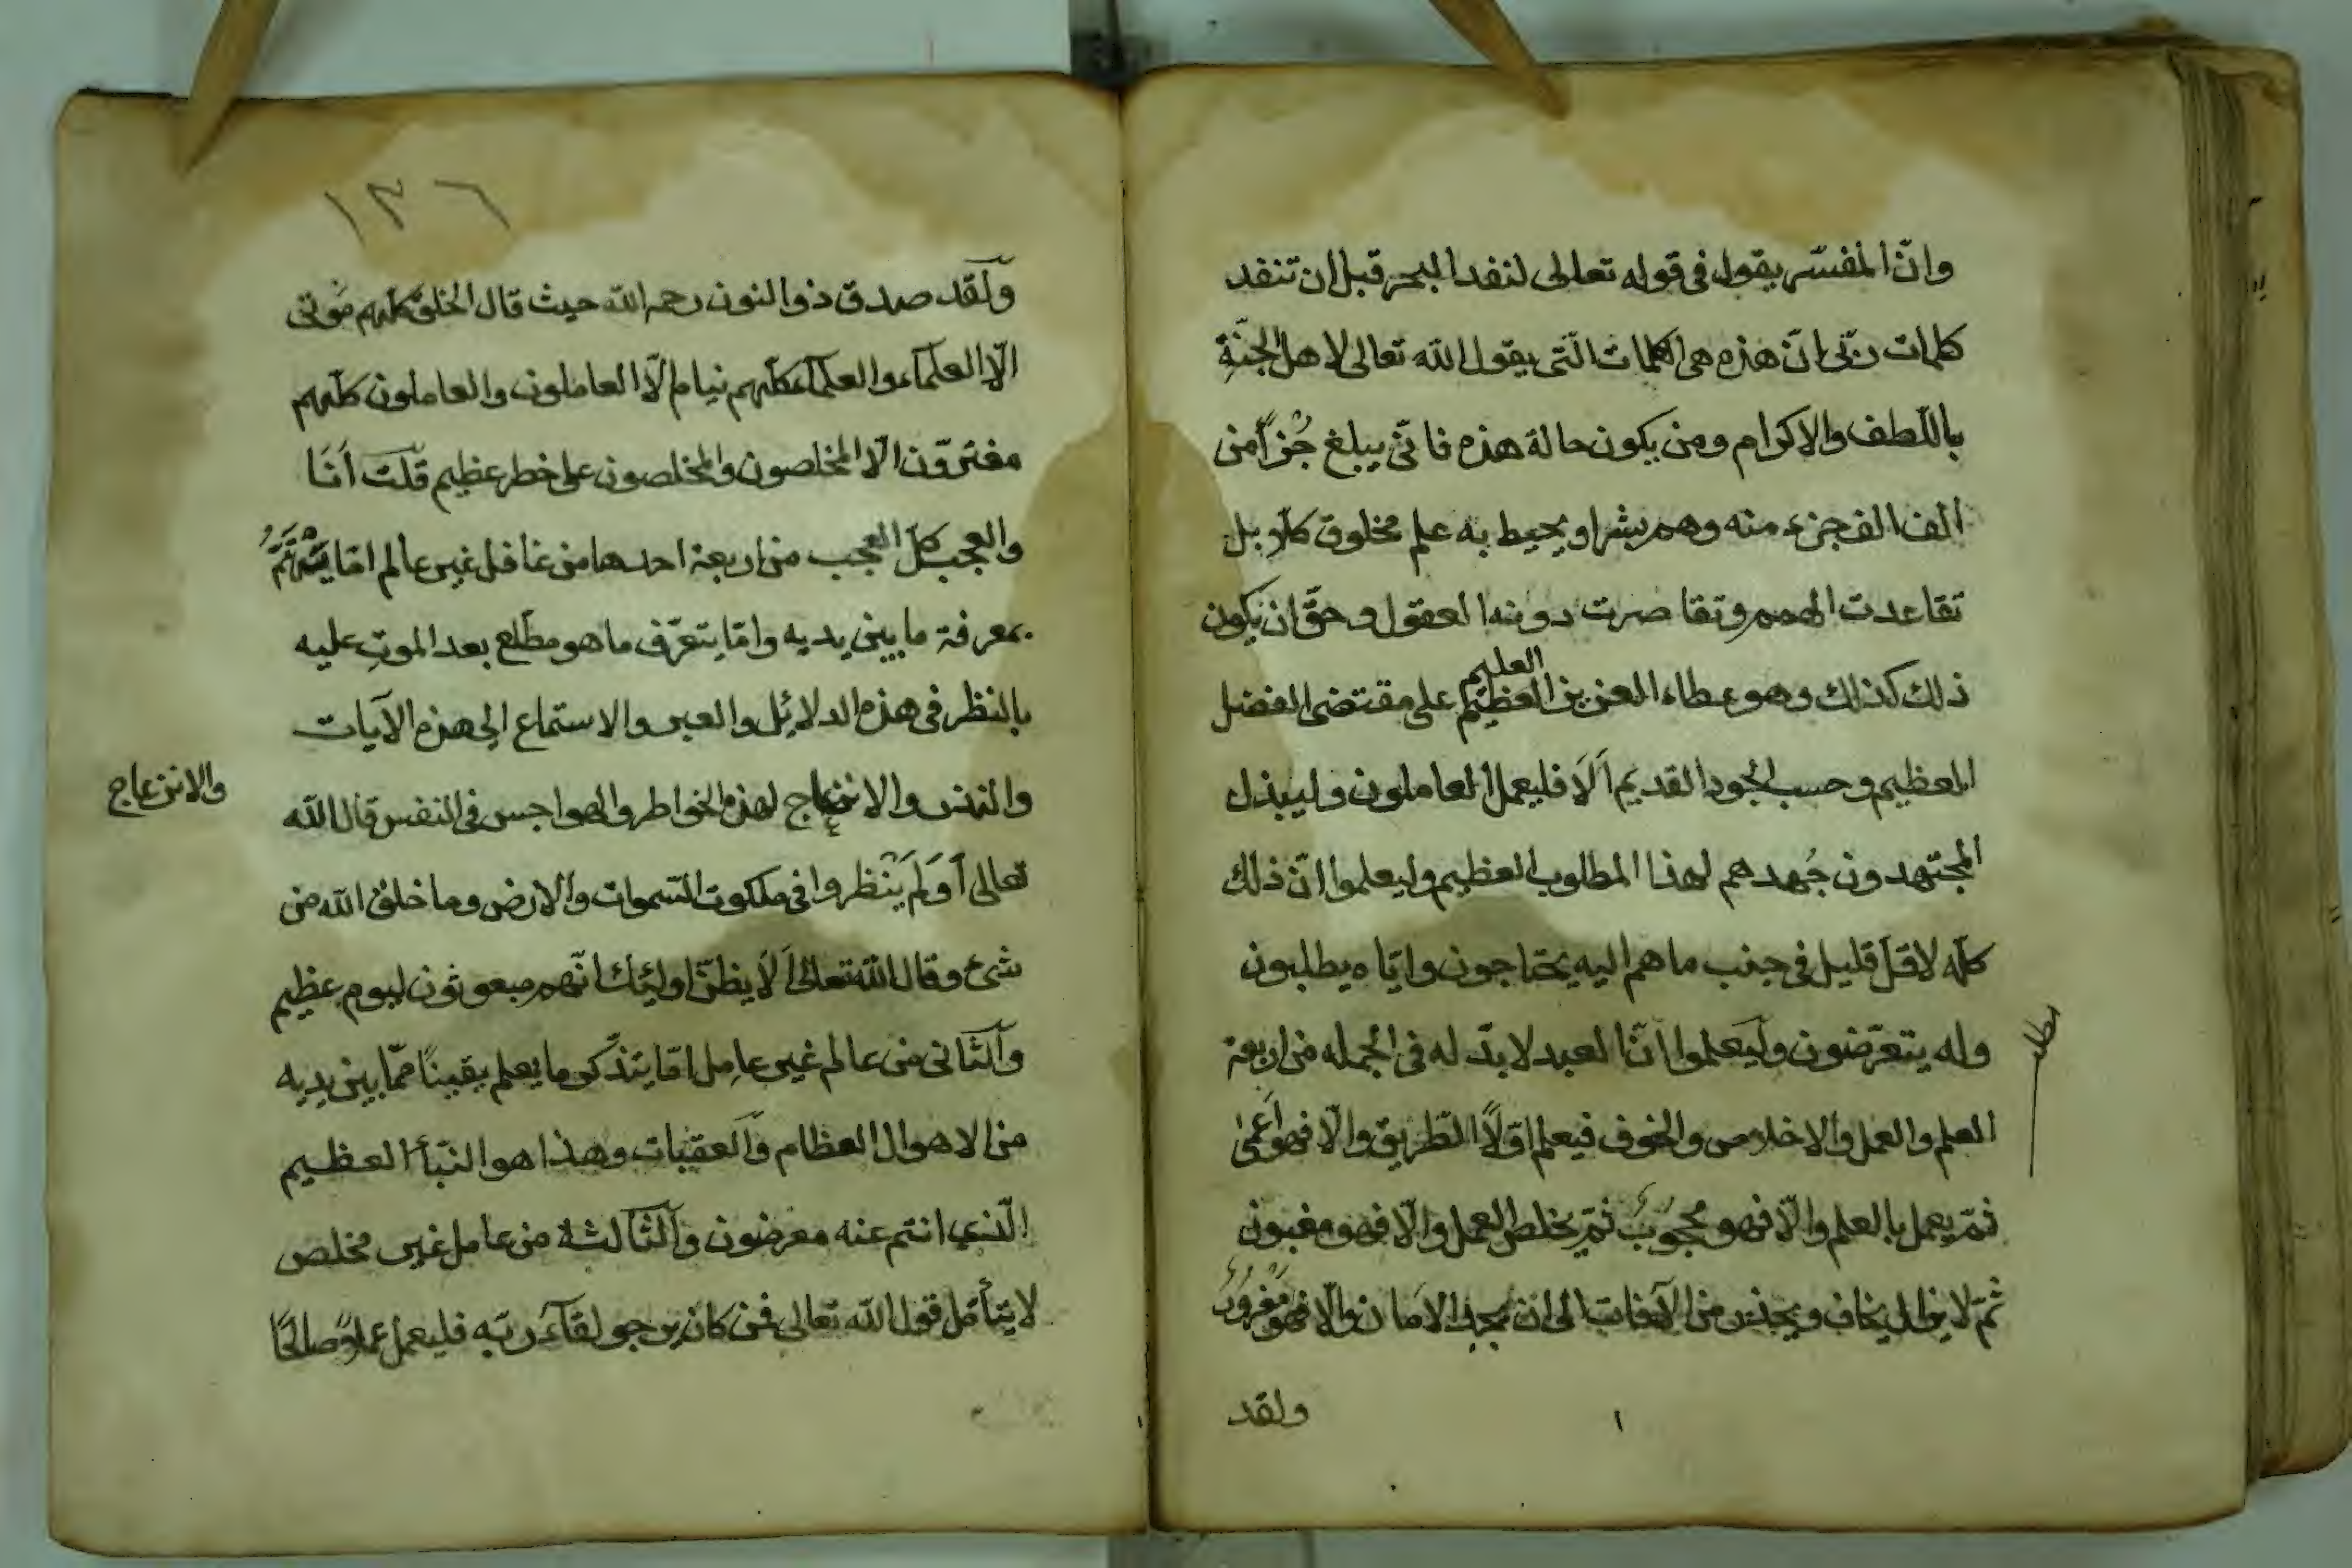 وانّ المفسّر يقول فى قوله تعالى لنفد البحر قبل ان تنفد
كلمات ربّى انّ هذه هى الكلمات الّتى يقول الله تعالى لاهل الجنّةِ
باللّطف والاكرام ومن يكون حالة هذه فانّى يبلغ جُزأً من
الف الف جزء منه وهم بشر او يحيط به علم مخلوق كلّا بل
تقاعدت الهمم وتقاصرت دونه العقول وحقّ ان يكون
العليم
ذلك كذلك وهو عطاء العزيز العظيم على مقتضى الفضل
العظيم وحسب الجود القديم اَلَا فليعمل العاملون وليبذل
المجتهدون جُهدهم لهذا المطلوب العظيم وليعلموا انّ ذلك
كلّه لاقلّ قليل فى جنب ما هم اليه يحتاجون وايّاه يطلبون
وله يتعرّضون وليعلموا انّ العبد لا بدّ له فى الجمله من اربعة
العلم والعمل والاخلاص والخوف فيعلم اوّلًا الطّريق والّا فهو اَعمىٰ
ثمّ يعمل بالعلم والّا فهو محجوبٌ ثمّ يخلص العمل والّا فهو مغبون
ثمّ لا يزال يخاف ويحذر من الآفات الى ان يجد الامان والّا فهو مغرورٌ
ولقد
مطلب
١٣٦
ولَقَد صدق ذو النون رحمه الله حيث قال الخلق كلّهم مَوتى
الّا العلمآء والعلمآء كلّهم نيام الّا العاملون والعاملون كلّهم
مغترّون الّا المخلصون والمخلصون على خطر عظيم قلت اَنَا
والعجب كلّ العجب من اربعة احدها من غافل غير عالم امّا يَهْتَمُّ
بمعرفة ما بين يديه وامّا يتعرّف ما هو مطّلع بعد الموتِ عليه
بالنظر فى هذه الدلائل والعبر والاستماع الى هذه الآيات
والنذر والانزعاج لهذه الخواطر والهواجس فى النفس قال الله
والانزعاج
تعالى اَوَلَم يَنْظروا فى ملكوت السّموات والارض وما خلق الله من
شئ وقال الله تعالى اَلَا يظنّ اولئك انّهم مبعوثون ليوم عظيم
والثّانى من عالم غير عامِل امّا يتذكّر ما يعلم يقينًا ممّا بين يديه
من الاهوال العظام والعقبات وهذا هو النّبأ العظيم
الّذي انتم عنه معرضون والثّالثة من عامل غير مخلص
لا يتأمّل قول الله تعالى فمن كان يرجو لقآء ربّه فليعمل عملًا صالحًا